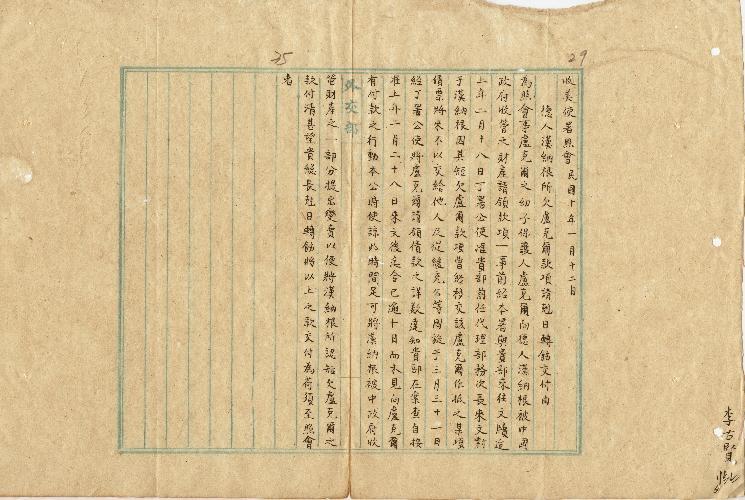 29
35
收美使署照會 民國十年一月十二日
德人漢納根所欠盧克爾款項請剋日轉飭交付由
為照會事盧克爾之幼子保護人盧克爾向德人漢納根被中國
政府收管之財產請領款項一事前經本署與貴部來往文牘迨
上年一月十八日丁署公使准貴部前任代理部務次長來文對
于漢納根因其短欠盧爾款項曾經移交該盧克爾作抵之某項
債票將來不以交給他人及從緩充公等因旋于三月三十一日
經丁署公使將盧克爾請領債款之詳數達知貴部在案查自接
准上年二月二十八日來文後迄今已逾十月而未見向盧克爾
有付款之行動本公時使諒此時間足可將漢納根被中政府收
管財產之一部分提出變賣以便將漢納根所認短欠盧克爾之
款付清甚望貴總長剋日轉飭將以上之款交付為荷須至照會
者
外交部
李古賢